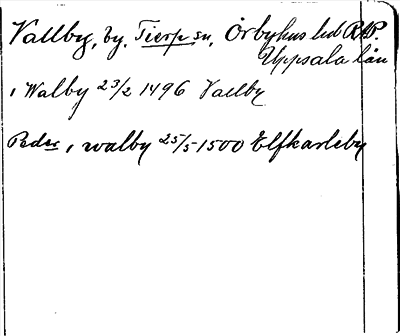 Vallby, by, Tierp sn, Örbyhus hd
Uppsala län
i Walby 23/2 1496 Vallby
Peder i walby 25/5 1500 Elfkarleby